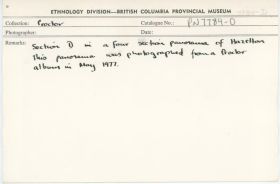 ETHNOLOGY DIVISION—BRITISH COLUMBIA PROVINCIAL MUSEUM
Collection: Proctor Catalogue No.: PN7789-D
Photographer: Date:
Remarks: Section D in a four section panorama of Hazelton
This panorama was photographed from a Proctor
album in May 1977.